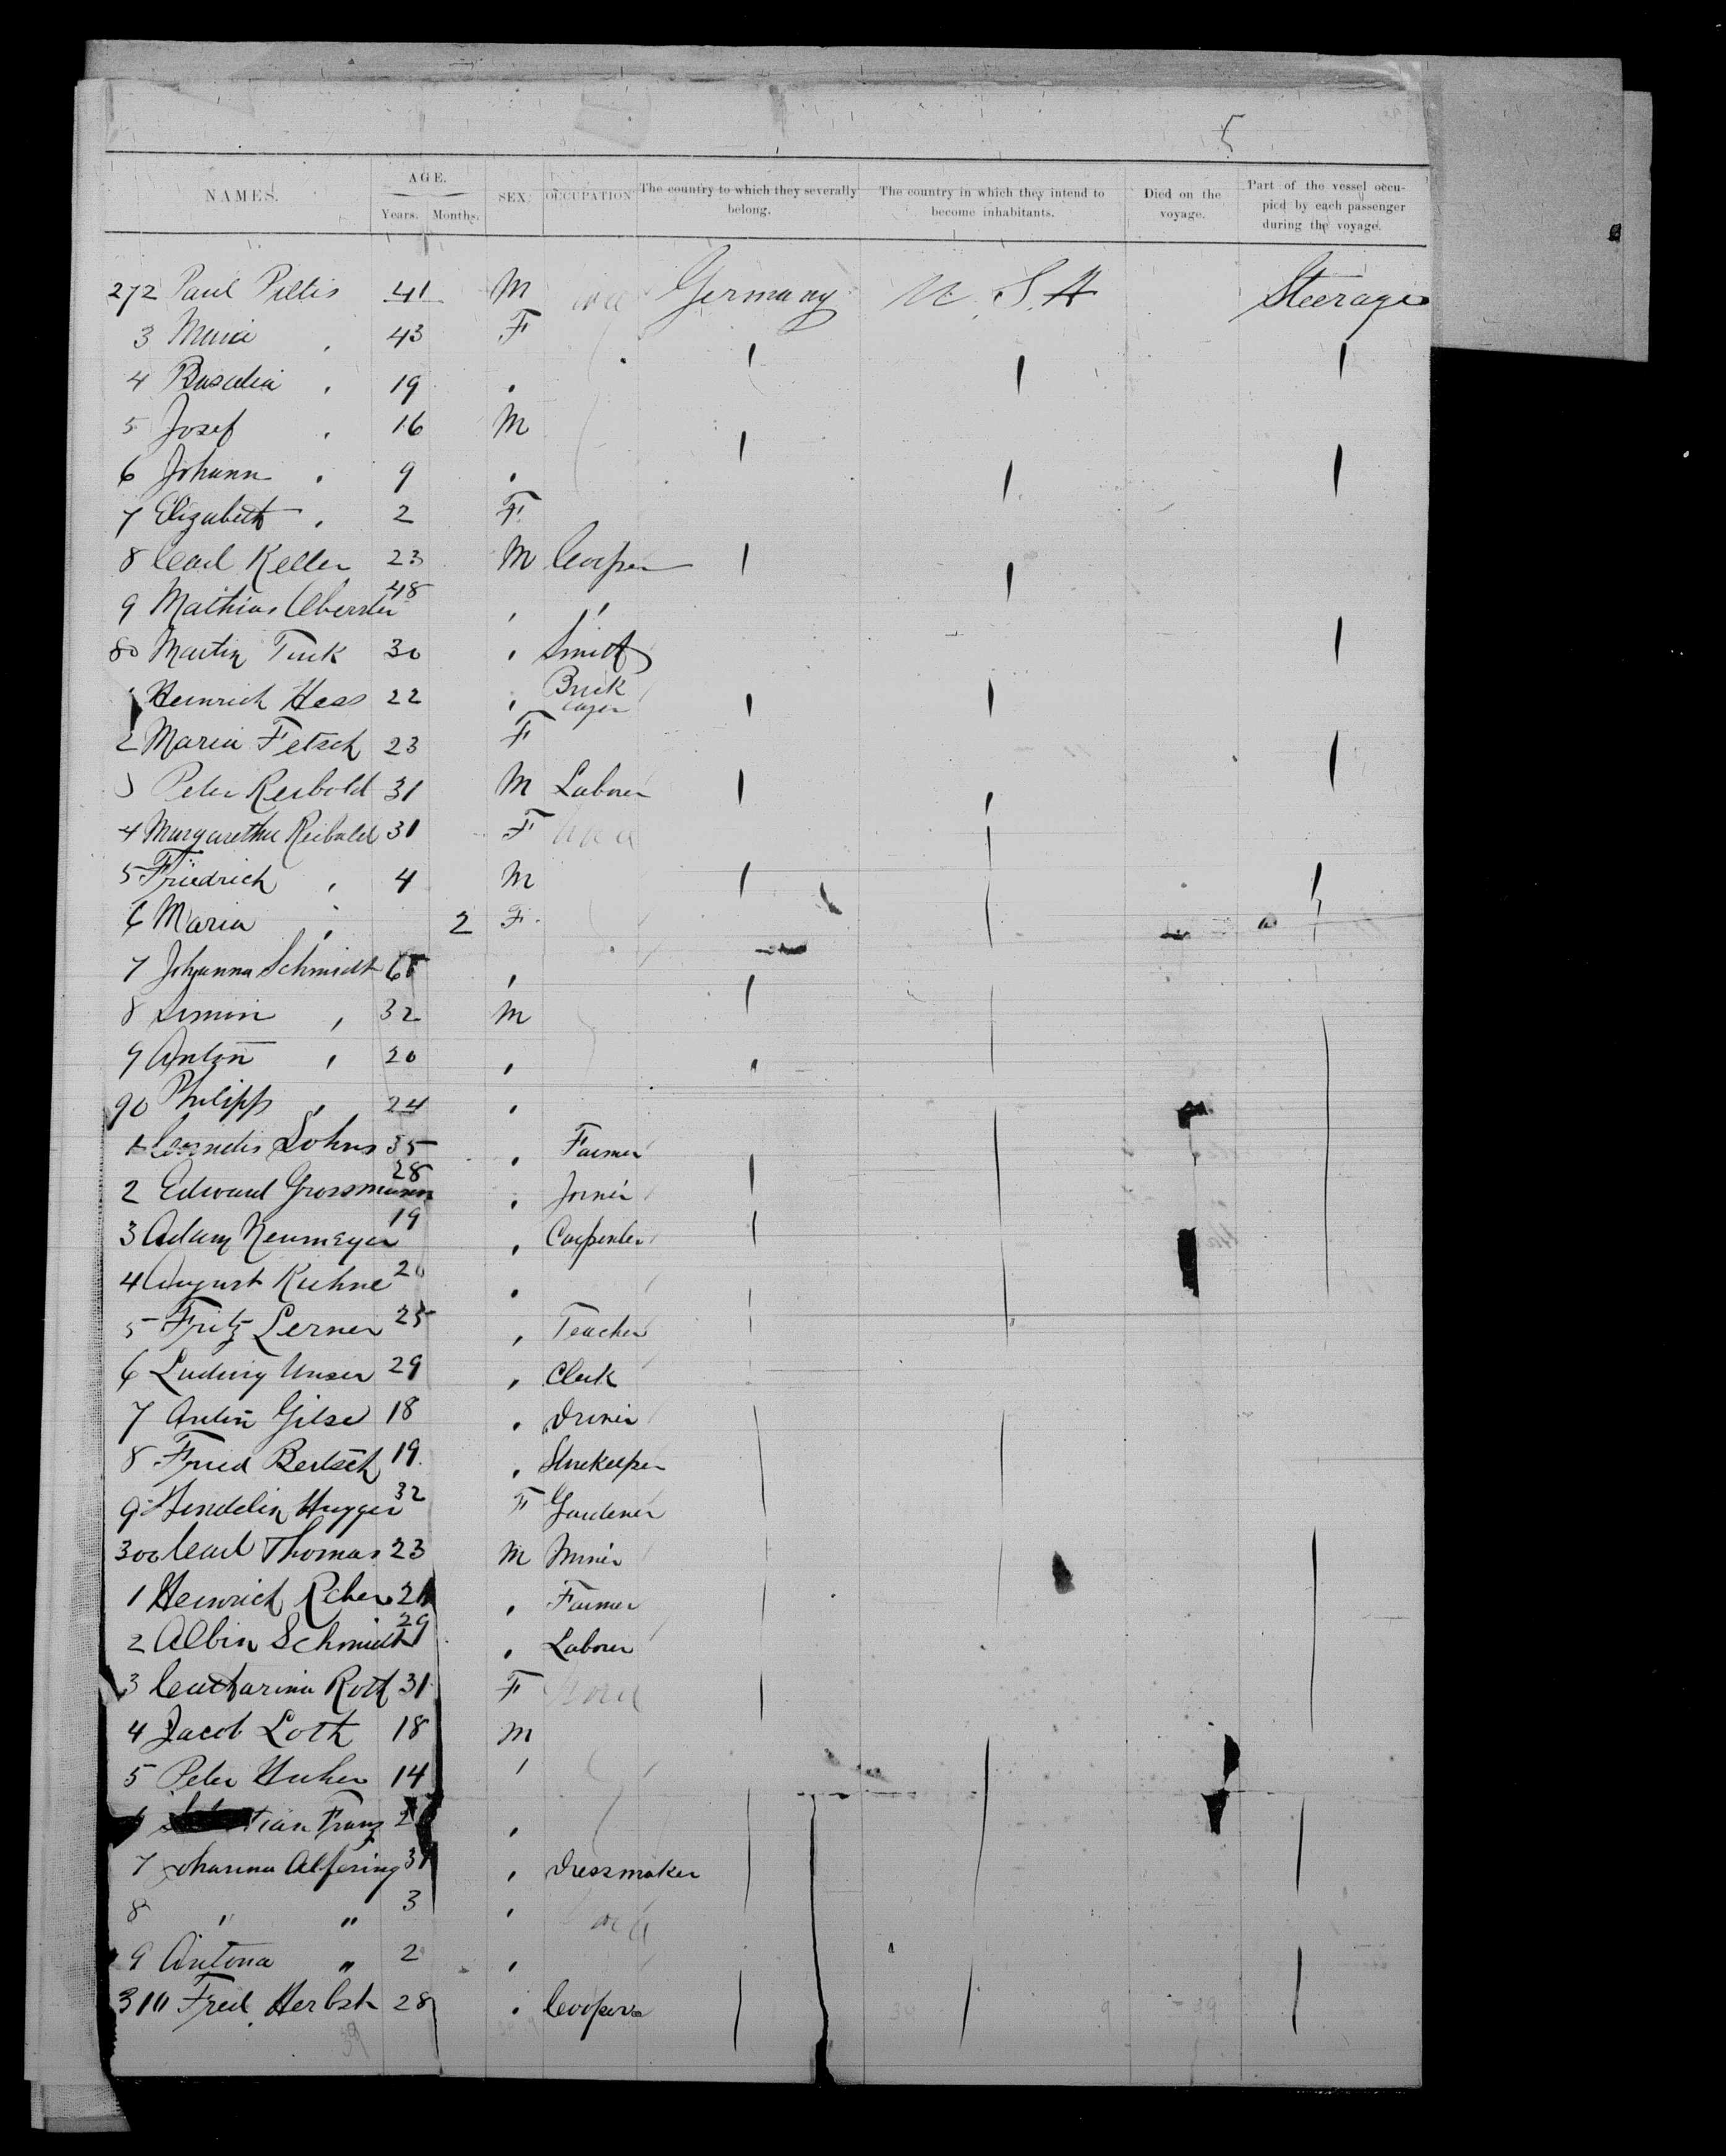 5
NAMES. AGE. Years. Months. SEX. OCCUPATION The country to which they severally belong. The country in which they intend to become inhabitants. Died on the voyage. Part of the vessel occupied by each passenger during the voyage.
272 Paul Piltis 41 M Germany U.S.A Steerage
3 Maria , 43 F
4 , 19 ,
5 Josef , 16 M
6 Johann , 9 ,
7 Elizabeth , 2 F
8 Carl Keller 23 M Cooper
9 Mathias 48 , ,
80 Martin Turk 30 , Smith
1 Heinrich Hess 22 , Brick layer
2 Maria Fetsch 23 F
3 Peter Reibold 31 M Laborer
4 Margaretha Reibold 31 F
5 Friedrich , 4 M
6 Maria , 2 F
7 Johanna Schmidt ,
8 Simon , 32 M
9 Anton , 20 ,
90 Philipp , 24 ,
1 Lohns 35 , Farmer
2 Edward Grossmann 28 , Joiner
3 Adam Neumeyer 19 , Carpenter
4 August Kuhne 20 ,
5 Fritz Lerner 25 , Teacher
6 Ludwig Unser 29 , Clerk
7 Anton Gilse 18 ,
8 Fried Bertsch 19 , Storekeeper
9 Wendelin Hugger 32 F Gardener
300 Carl Thomas 23 M Miner
1 Heinrich Reber , Farmer
2 Albin Schmidt 29 , Laborer
3 Catharina Roth 31 F
4 Jacob Loth 18 M
5 Peter Huber 14 ,
6 Franz ,
7 Johanna Alfering , Dressmaker
8 " " 3 ,
9 Antona " 2 ,
310 Fred. Herbst 28 , Cooper
39
39